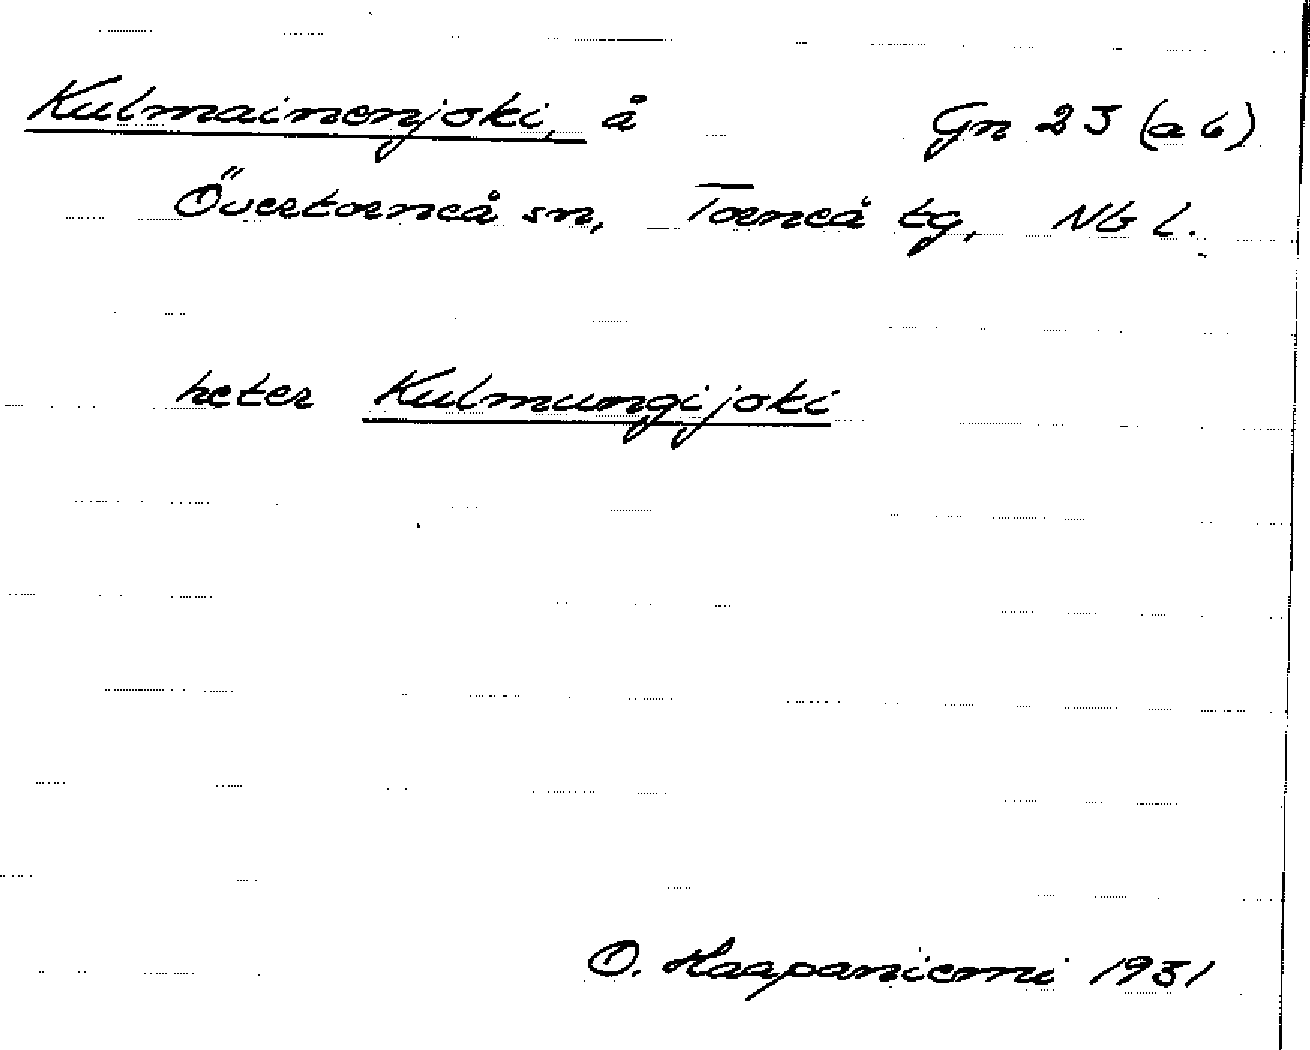 Kulmainenjoki, å Gn 23 (a b)
Övertorneå sn, Torneå tg, Nb l.
heter Kulmungijoki
O. Haapaniemi 1931